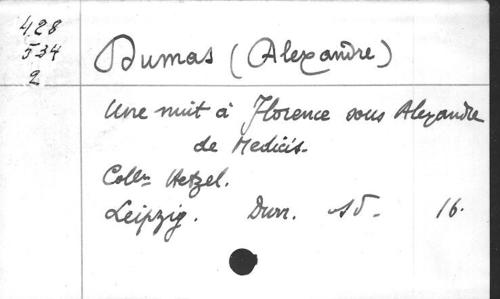 428
534
2
Dumas (Alexandre)
Une nuit à Florence sous Alexandre
de Medicis.
Colln Hetzel.
Leipzig. Durr. sd. 16.